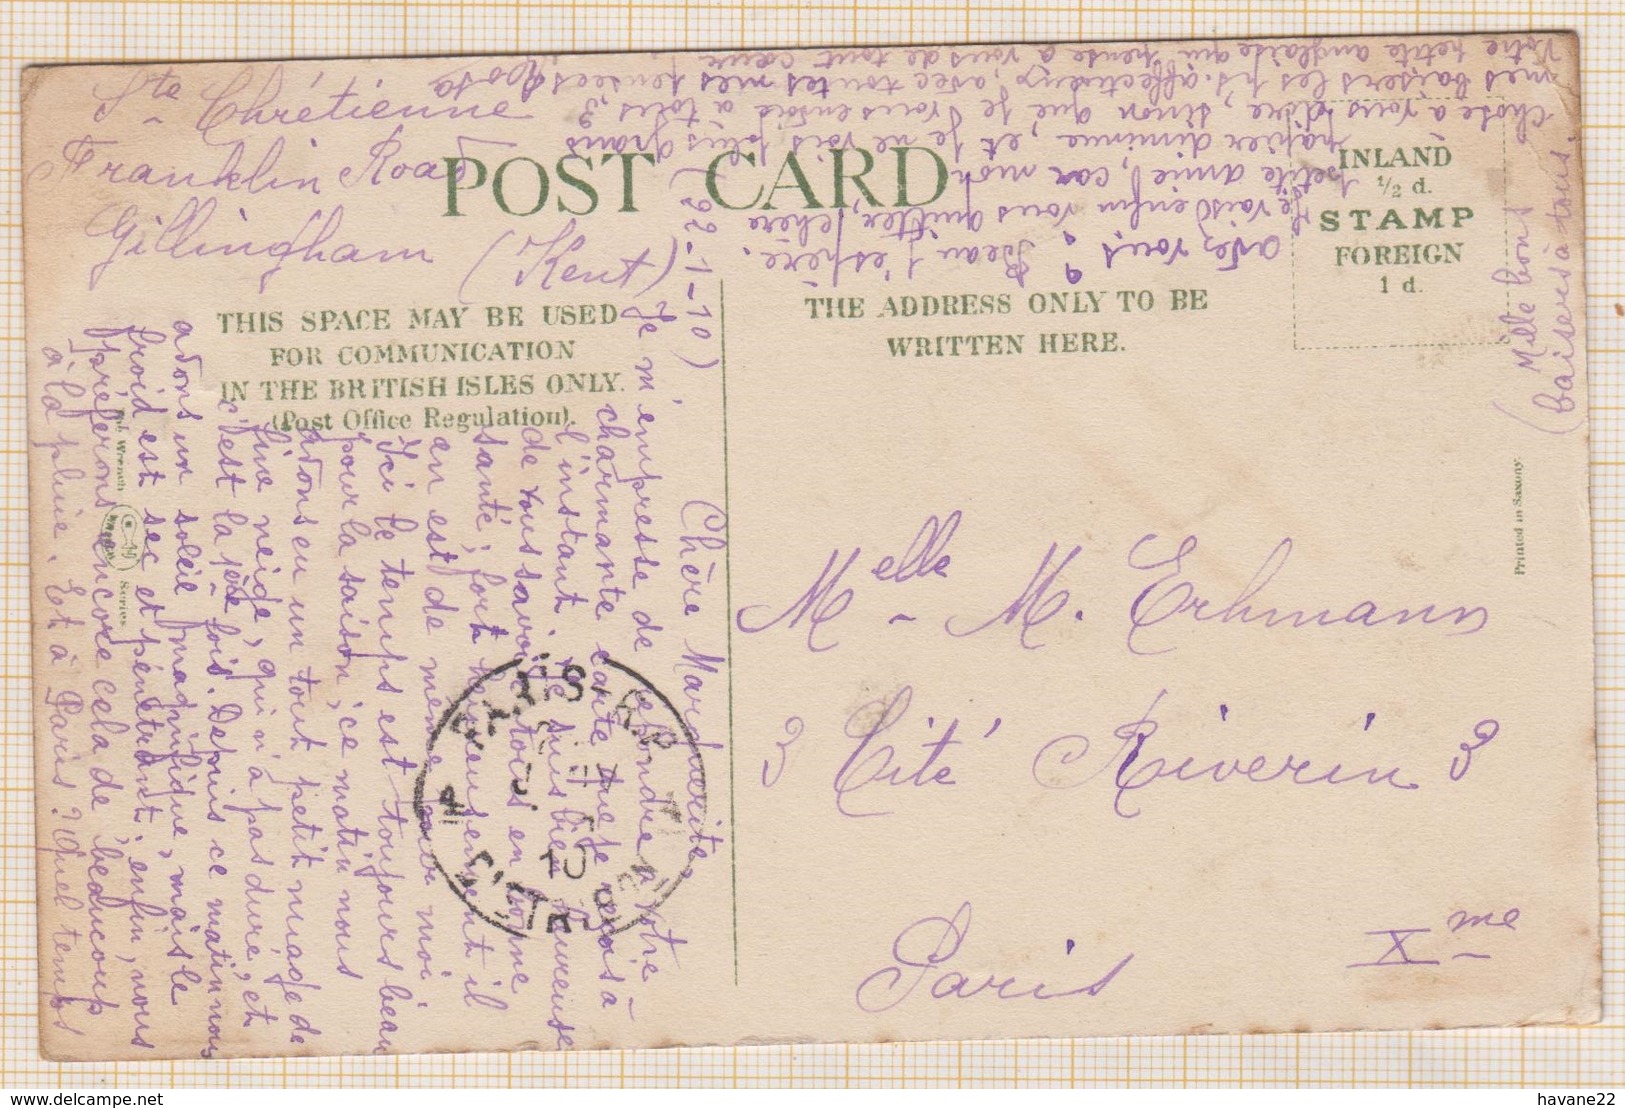 Ste Chrétienne
Franklin Road
Gillingham (Kent)
2-1-10)
POST CARD
THIS SPACE MAY BE USED
FOR COMMUNICATION
IN THE BRITISH ISLES ONLY.
(Post Office Regulation).
THE ADDRESS ONLY TO BE
WRITTEN HERE.
INLAND
½ d.
STAMP
FOREIGN
1 d.
Chère Marguerite,
Je m'empresse de répondre à votre
charmante carte que je reçois à
l'instant. Je suis bien heureuse
de vous savoir tous en bonne
santé; fort heureusement il
en est de même pour moi
Ici le temps est toujours beau
pour la saison; ce matin nous
avons eu un tout petit nuage de
fine neige, qui n'a pas duré, et
c'est la 1ère fois. Depuis ce matin nous
avons un soleil magnifique, mais le
froid est sec et pénétrant; enfin, nous
préférons encore cela de beaucoup
à la pluie. Et à Paris? Quel temps
avez vous? Beau j'espère.
Je vais enfin vous quitter, chère
petite amie, car mon
papier diminue, et je ne vois plus grand
chose à vous dire, sinon que je vous envoie à tous 3
mes baisers les ps. affectueux, avec toutes mes pensées
Votre petite anglaise qui pense à vous de tout cœur
(Mille bons
baisers à tous.
Melle M. Erhmann
3 Cité Riverin 3
Paris Xme
Wrench
Series
Printed in Saxony.
havane22